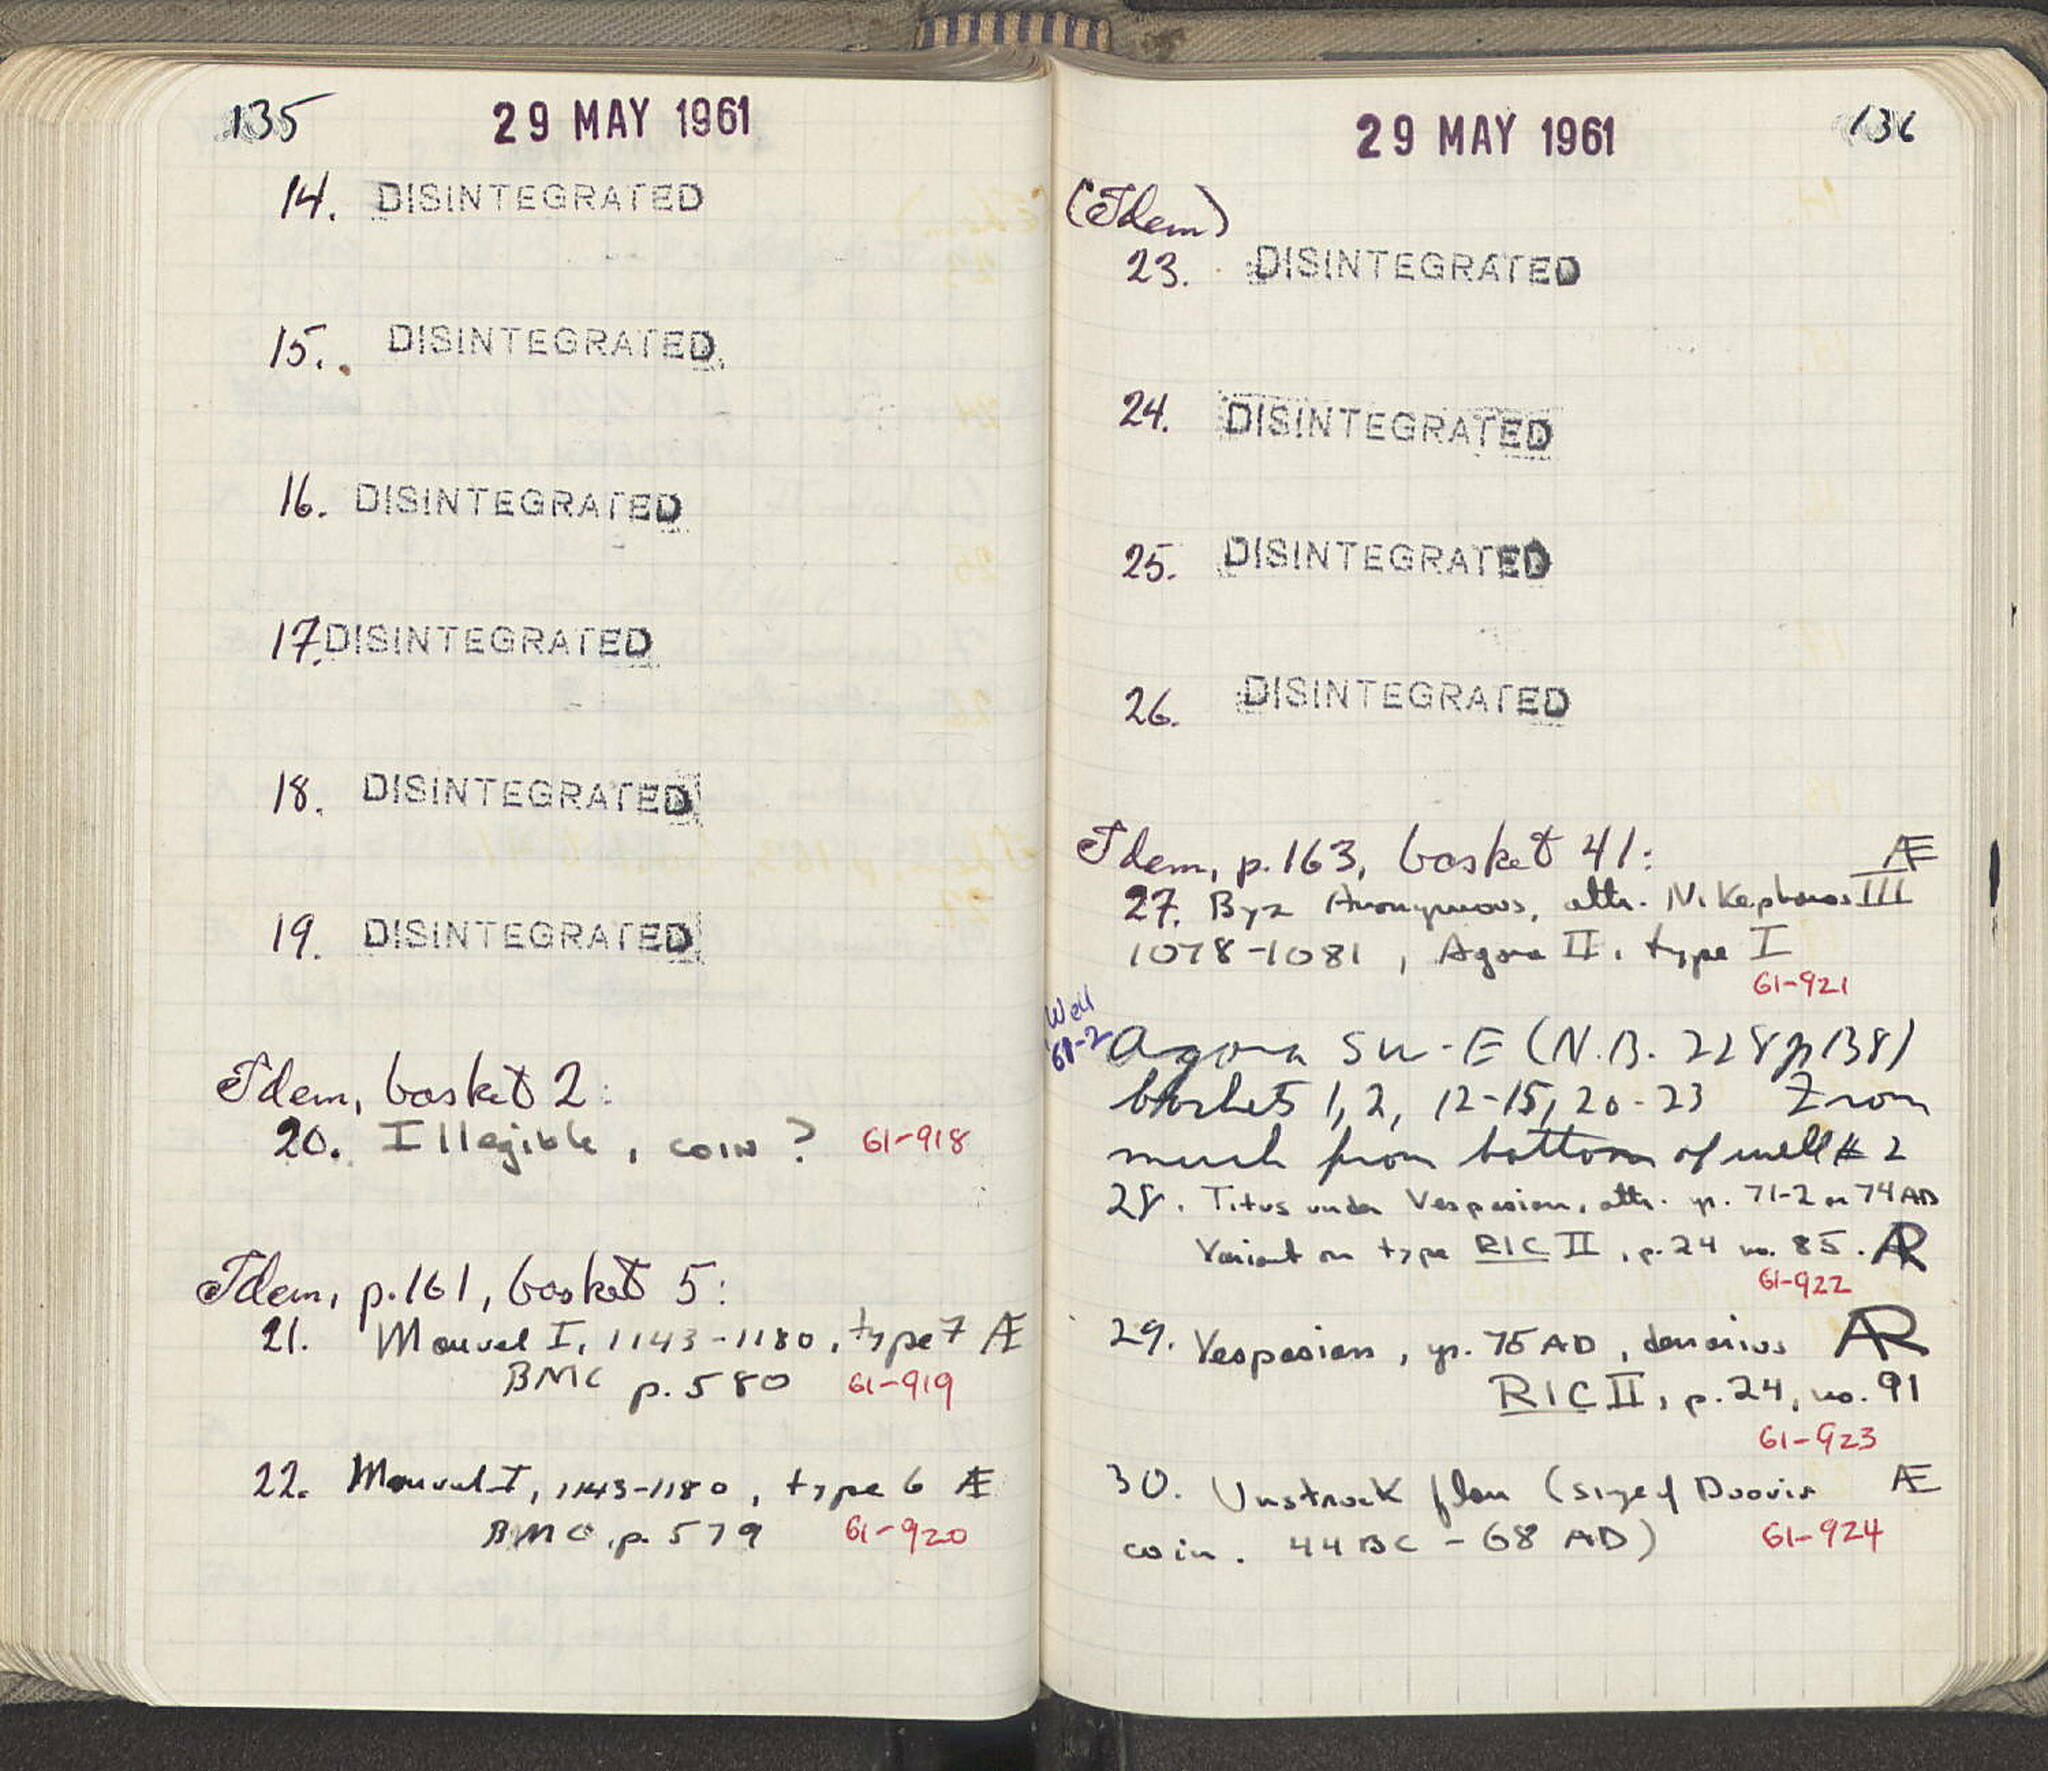 135
29 MAY 1961
14. DISINTEGRATED
15. DISINTEGRATED
16. DISINTEGRATED
17. DISINTEGRATED
18. DISINTEGRATED
19. DISINTEGRATED
Idem, basket 2:
20. Illegible, coin? 61-918
Idem, p.161, basket 5:
21. Manuel I, 1143-1180, type 7 Æ
BMC p.580 61-919
22. Manuel I, 1143-1180, type 6 Æ
BMC, p. 579 61-920
136
29 MAY 1961
(Idem)
23. DISINTEGRATED
24. DISINTEGRATED
25. DISINTEGRATED
26. DISINTEGRATED
Idem, p.163, basket 41: Æ
27. Byz Anonymous, attr. Nikephoros III
1078-1081, Agora II, type I
61-921
Well
61-2
Agora SW-E (N.B. 228 p 138)
baskets 1, 2, 12-15, 20-23 From
much from bottom of well # 2
28. Titus under Vespasian, attr. yr. 71-2 or 74 AD
Variant on type RIC II, p.24 no. 85. AR
61-922
29. Vespasian, yr. 75 AD, denarius AR
RIC II, p.24, no. 91
61-923
30. Unstruck flan (size of Duovir Æ
coin. 44 BC - 68 AD) 61-924